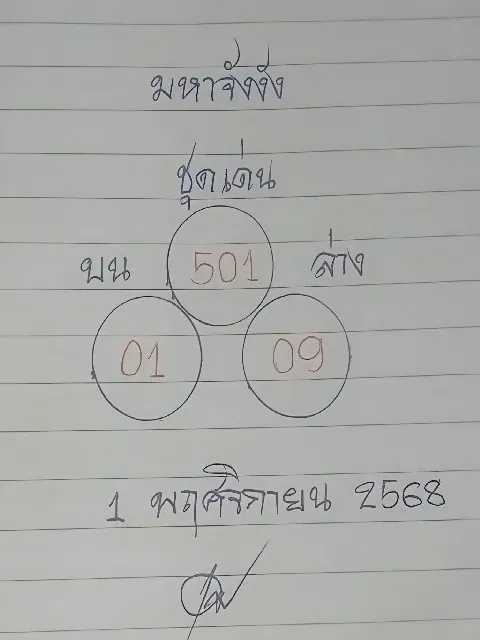 มหาจังงัง
ชุดเด่น
บน 501 ล่าง
01 09
1 พฤศจิกายน 2568